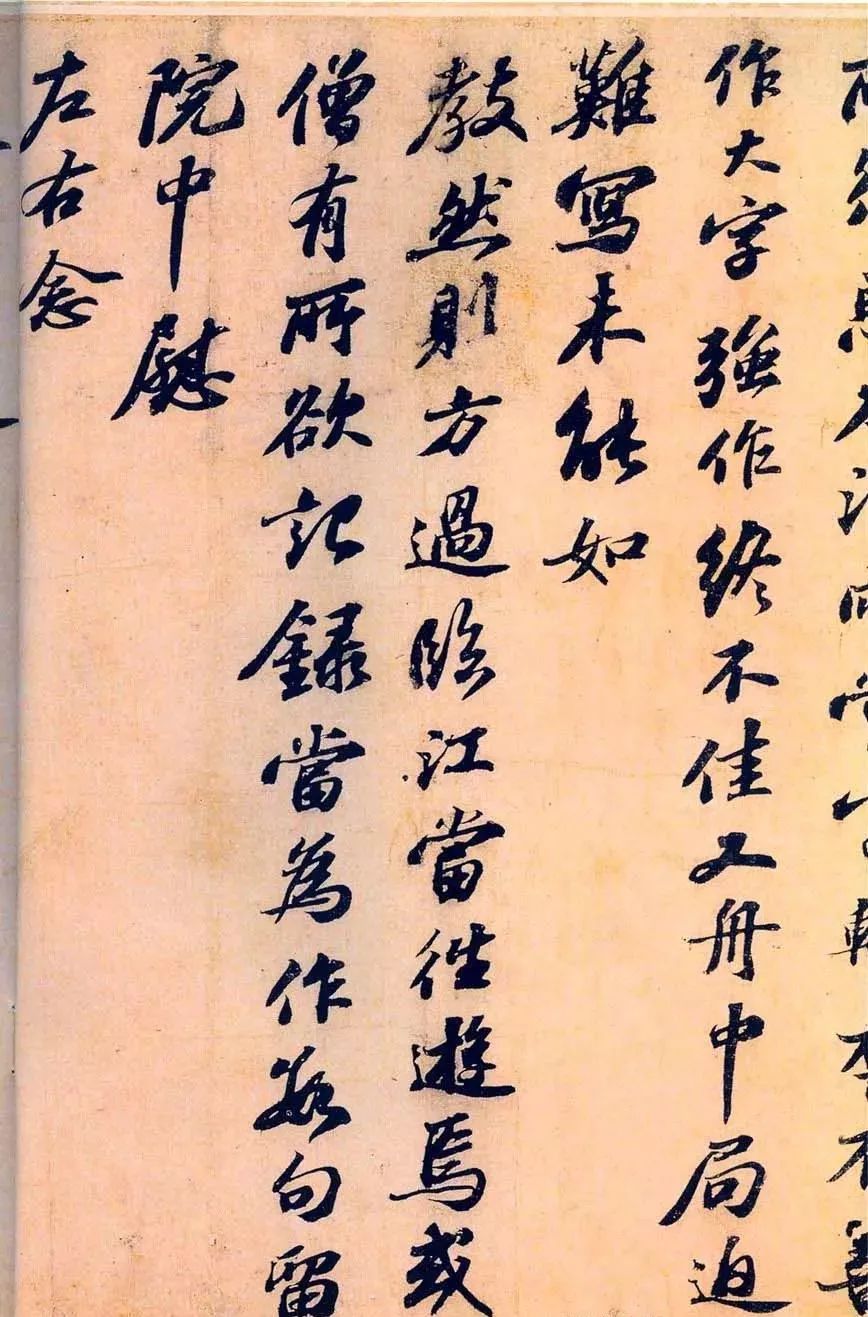 軾本不善
作大字強作終不佳又舟中局迫
難寫未能如
教然則方過臨江當往遊焉或
僧有所欲記録當為作數句留
院中慰
左右念